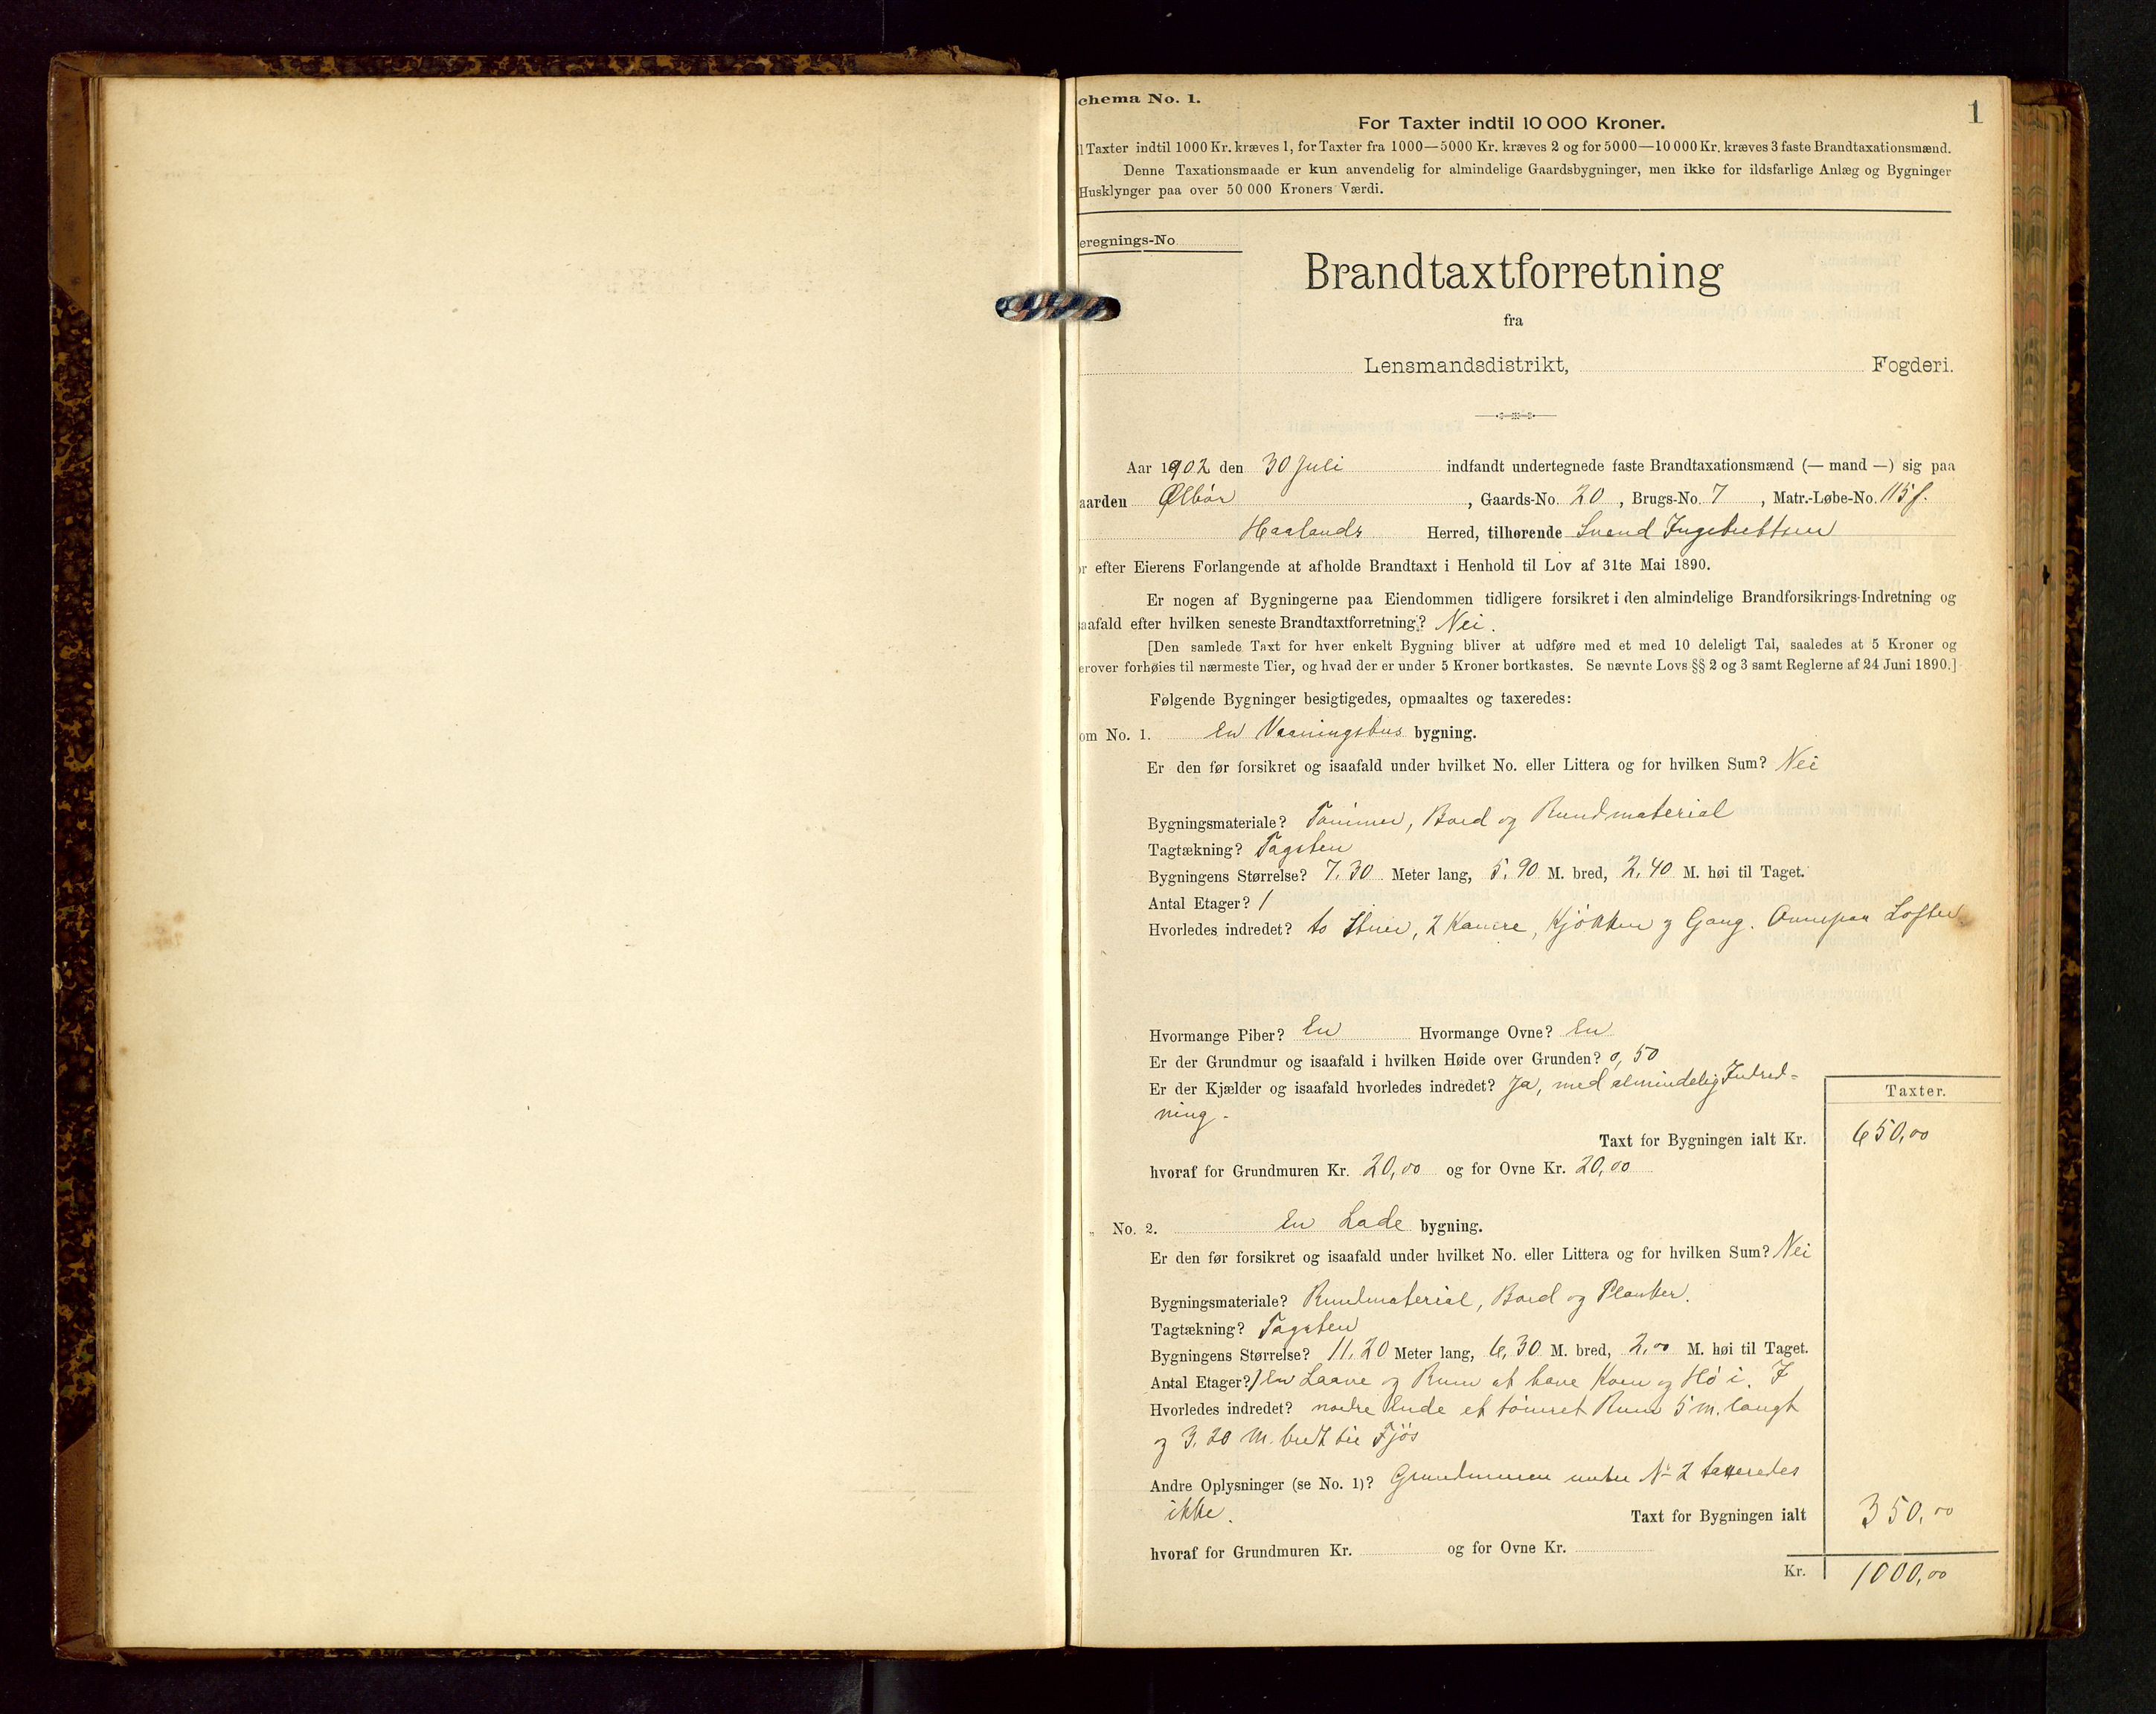 chema No. 1.
1
For Taxter indtil 10 000 Kroner.
l Taxter indtil 1000 Kr. kræves 1, for Taxter fra 1000—5000 Kr. kræves 2 og for 5000—10 000 Kr. kræves 3 faste Brandtaxationsmænd.
Denne Taxationsmaade er kun anvendelig for almindelige Gaardsbygninger, men ikke for ildsfarlige Anlæg og Bygninger
Husklynger paa over 50 000 Kroners Værdi.
eregnings-No
Brandtaxtforretning
fra
Lensmandsdistrikt, Fogderi.
Aar 1902 den 30 Juli indfandt undertegnede faste Brandtaxationsmænd (— mand —) sig paa
aarden Ølbör, Gaards-No. 20, Brugs-No. 7, Matr.-Løbe-No. 115 f.
Haalands Herred, tilhørende Svend Ingebretsen
r efter Eierens Forlangende at afholde Brandtaxt i Henhold til Lov af 31te Mai 1890.
Er nogen af Bygningerne paa Eiendommen tidligere forsikret i den almindelige Brandforsikrings-Indretning og
aafald efter hvilken seneste Brandtaxtforretning? Nei.
[Den samlede Taxt for hver enkelt Bygning bliver at udføre med et med 10 deleligt Tal, saaledes at 5 Kroner og
erover forhøies til nærmeste Tier, og hvad der er under 5 Kroner bortkastes. Se nævnte Lovs §§ 2 og 3 samt Reglerne af 24 Juni 1890.]
Følgende Bygninger besigtigedes, opmaaltes og taxeredes:
om No. 1. En Vaaningshus bygning.
Er den før forsikret og isaafald under hvilket No. eller Littera og for hvilken Sum? Nei
Bygningsmateriale? Tømmer, Bord og Rundmaterial
Tagtækning? Tagsten
Bygningens Størrelse? 7.30 Meter lang, 5.90 M. bred, 2.40 M. høi til Taget.
Antal Etager? 1
Hvorledes indredet? to Stuer, 2 Kamre, Kjøkken og Gang. Ovenpaa Lofter
Hvormange Piber? En Hvormange Ovne? En
Er der Grundmur og isaafald i hvilken Høide over Grunden? 0,50
Er der Kjælder og isaafald hvorledes indredet? Ja, med almindelig Indred-
ning.
Taxter.
Taxt for Bygningen ialt Kr. 650,00
hvoraf for Grundmuren Kr. 20,00 og for Ovne Kr. 20,00
„ No. 2. En Lade bygning.
Er den før forsikret og isaafald under hvilket No. eller Littera og for hvilken Sum? Nei
Bygningsmateriale? Rundmaterial, Bord og Planker.
Tagtækning? Tagsten
Bygningens Størrelse? 11.20 Meter lang, 6,30 M. bred, 2,00 M. høi til Taget.
Antal Etager? 1 En Laave og Rum at have Korn og Hö i. I
Hvorledes indredet? nordre Ende et tömret Rum 5 m. langt
og 3.20 m. bredt til Fjös
Andre Oplysninger (se No. 1)? Grundmuren under No 2 taxeredes
ikke. Taxt for Bygningen ialt 350,00
hvoraf for Grundmuren Kr. og for Ovne Kr.
Kr. 1000,00